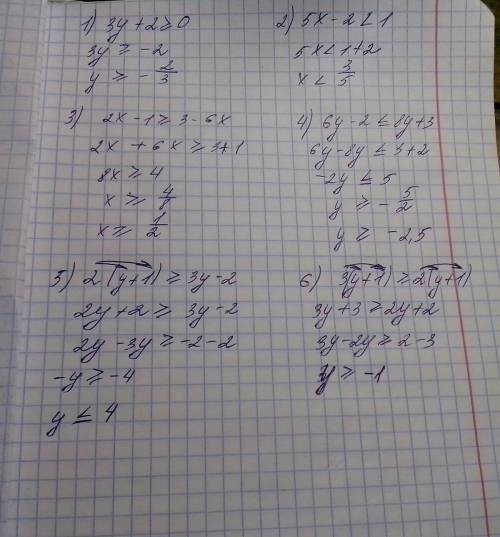 1) 3y + 2 ≥ 0
3y ≥ -2
y ≥ - 2/3
2) 5x - 2 < 1
5x < 1 + 2
x < 3/5
3) 2x - 1 ≥ 3 - 6x
2x + 6x ≥ 3 + 1
8x ≥ 4
x ≥ 4/8
x ≥ 1/2
4) 6y - 2 ≤ 8y + 3
6y - 8y ≤ 3 + 2
-2y ≤ 5
y ≥ - 5/2
y ≥ -2,5
5) 2(y+1) ≥ 3y - 2
2y + 2 ≥ 3y - 2
2y - 3y ≥ -2 - 2
-y ≥ -4
y ≤ 4
6) 3(y+1) ≥ 2(y+1)
3y + 3 ≥ 2y + 2
3y - 2y ≥ 2 - 3
y ≥ -1